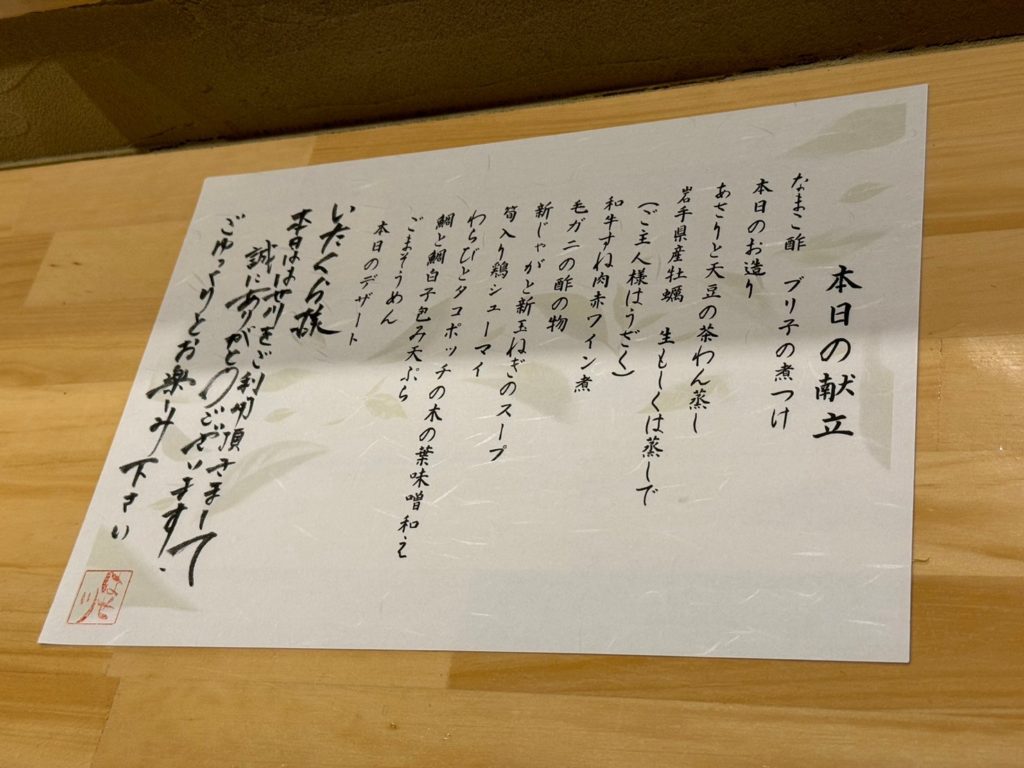 本日の献立
なまこ酢　ブリ子の煮つけ
本日のお造り
あさりと天豆の茶わん蒸し
岩手県産牡蠣　生もしくは蒸しで
(ご主人様はうざく)
和牛すね肉赤ワイン煮
毛ガニの酢の物
新じゃがと新玉ねぎのスープ
筍入り鶏シューマイ
わらびとタコポッチの木の葉味噌和え
鯛と鯛白子包み天ぷら
ごまそうめん
本日のデザート
いたくら様
本日ははせ川をご利用頂きまして
誠にありがとうございます!
ごゆっくりとお楽しみ下さい
はせ川